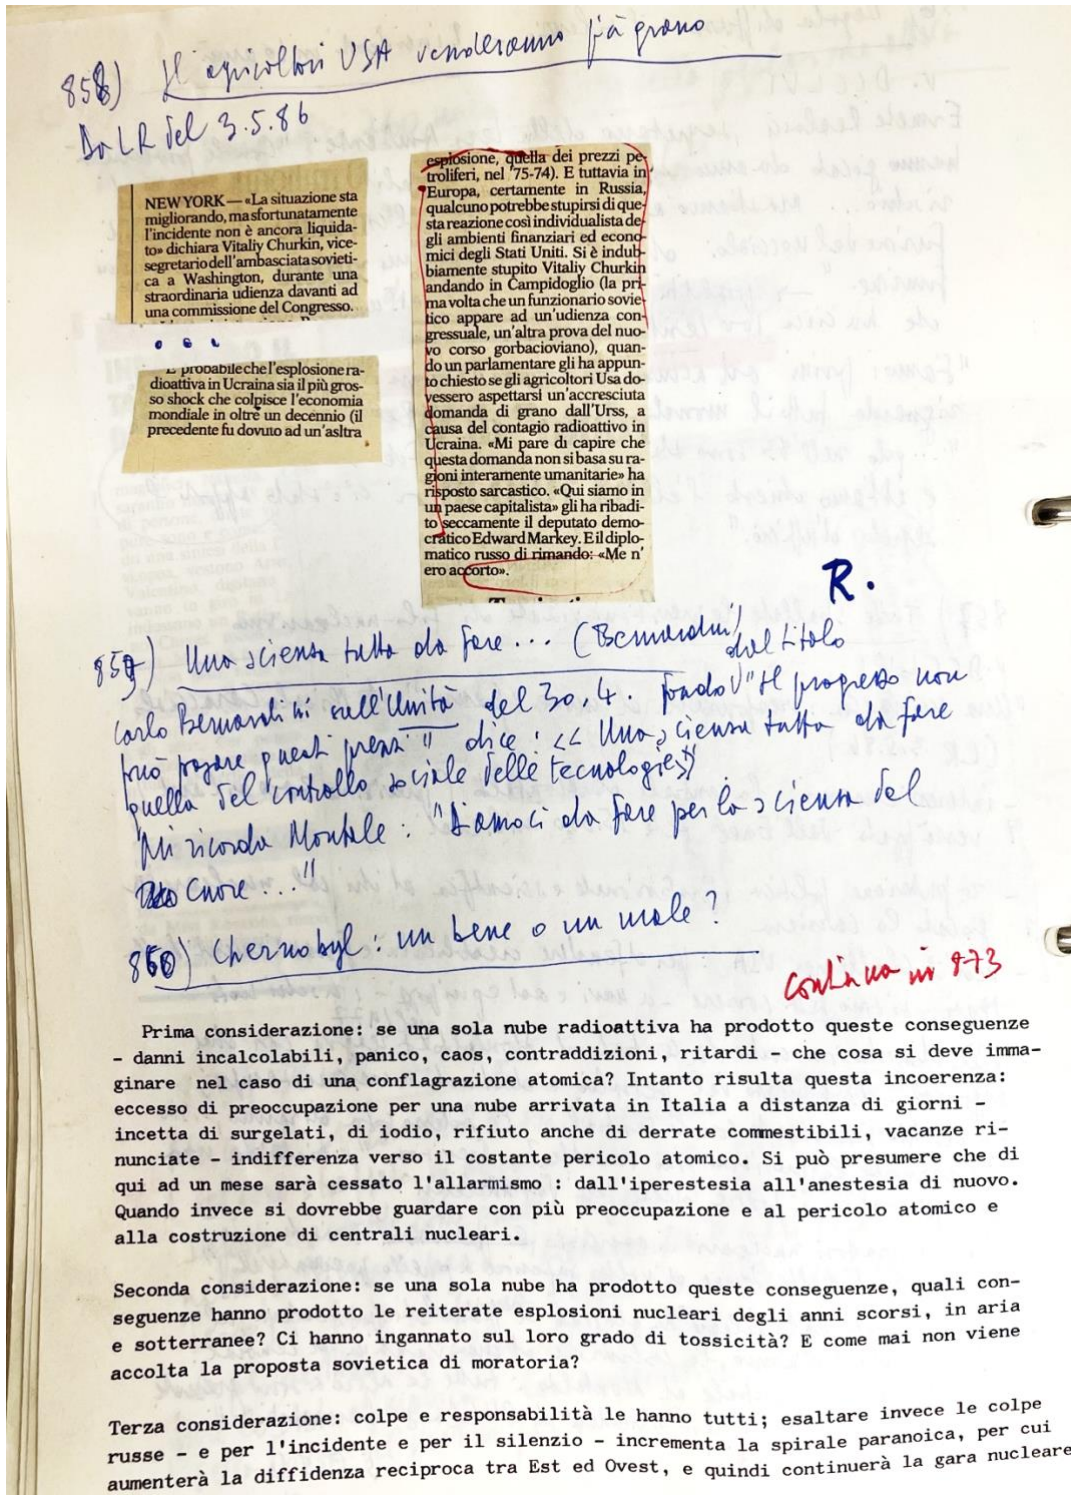 858) Gli agricoltori USA venderanno più grano
Da LR del 3.5.86
NEW YORK — «La situazione sta
migliorando, ma sfortunatamente
l'incidente non è ancora liquida-
to» dichiara Vitaliy Churkin, vice-
segretario dell'ambasciata sovieti-
ca a Washington, durante una
straordinaria udienza davanti ad
una commissione del Congresso.
...
È probabile che l'esplosione ra-
dioattiva in Ucraina sia il più gros-
so shock che colpisce l'economia
mondiale in oltre un decennio (il
precedente fu dovuto ad un'asltra
esplosione, quella dei prezzi pe-
troliferi, nel '75-74). E tuttavia in
Europa, certamente in Russia,
qualcuno potrebbe stupirsi di que-
sta reazione così individualista de-
gli ambienti finanziari ed econo-
mici degli Stati Uniti. Si è indub-
biamente stupito Vitaliy Churkin
andando in Campidoglio (la pri-
ma volta che un funzionario sovie-
tico appare ad un'udienza con-
gressuale, un'altra prova del nuo-
vo corso gorbacioviano), quan-
do un parlamentare gli ha appun-
to chiesto se gli agricoltori Usa do-
vessero aspettarsi un'accresciuta
domanda di grano dall'Urss, a
causa del contagio radioattivo in
Ucraina. «Mi pare di capire che
questa domanda non si basa su ra-
gioni interamente umanitarie» ha
risposto sarcastico. «Qui siamo in
un paese capitalista» gli ha ribadi-
to seccamente il deputato demo-
cratico Edward Markey. E il diplo-
matico russo di rimando: «Me n'
ero accorto».
R.
859) Una scienza tutta da fare... (Bernardini)
dal titolo
Carlo Bernardini sull'Unità del 30.4. fondo "Il progresso non
può pagare questi prezzi" dice: << Una scienza tutta da fare
quella del controllo sociale delle tecnologie>>
Mi ricorda Montale: "Diamoci da fare per la scienza del
Cuore..."
860) Chernobyl: un bene o un male?
continua in 873
Prima considerazione: se una sola nube radioattiva ha prodotto queste conseguenze
- danni incalcolabili, panico, caos, contraddizioni, ritardi - che cosa si deve imma-
ginare nel caso di una conflagrazione atomica? Intanto risulta questa incoerenza:
eccesso di preoccupazione per una nube arrivata in Italia a distanza di giorni -
incetta di surgelati, di iodio, rifiuto anche di derrate commestibili, vacanze ri-
nunciate - indifferenza verso il costante pericolo atomico. Si può presumere che di
qui ad un mese sarà cessato l'allarmismo : dall'iperestesia all'anestesia di nuovo.
Quando invece si dovrebbe guardare con più preoccupazione e al pericolo atomico e
alla costruzione di centrali nucleari.
Seconda considerazione: se una sola nube ha prodotto queste conseguenze, quali con-
seguenze hanno prodotto le reiterate esplosioni nucleari degli anni scorsi, in aria
e sotterranee? Ci hanno ingannato sul loro grado di tossicità? E come mai non viene
accolta la proposta sovietica di moratoria?
Terza considerazione: colpe e responsabilità le hanno tutti; esaltare invece le colpe
russe - e per l'incidente e per il silenzio - incrementa la spirale paranoica, per cui
aumenterà la diffidenza reciproca tra Est ed Ovest, e quindi continuerà la gara nucleare